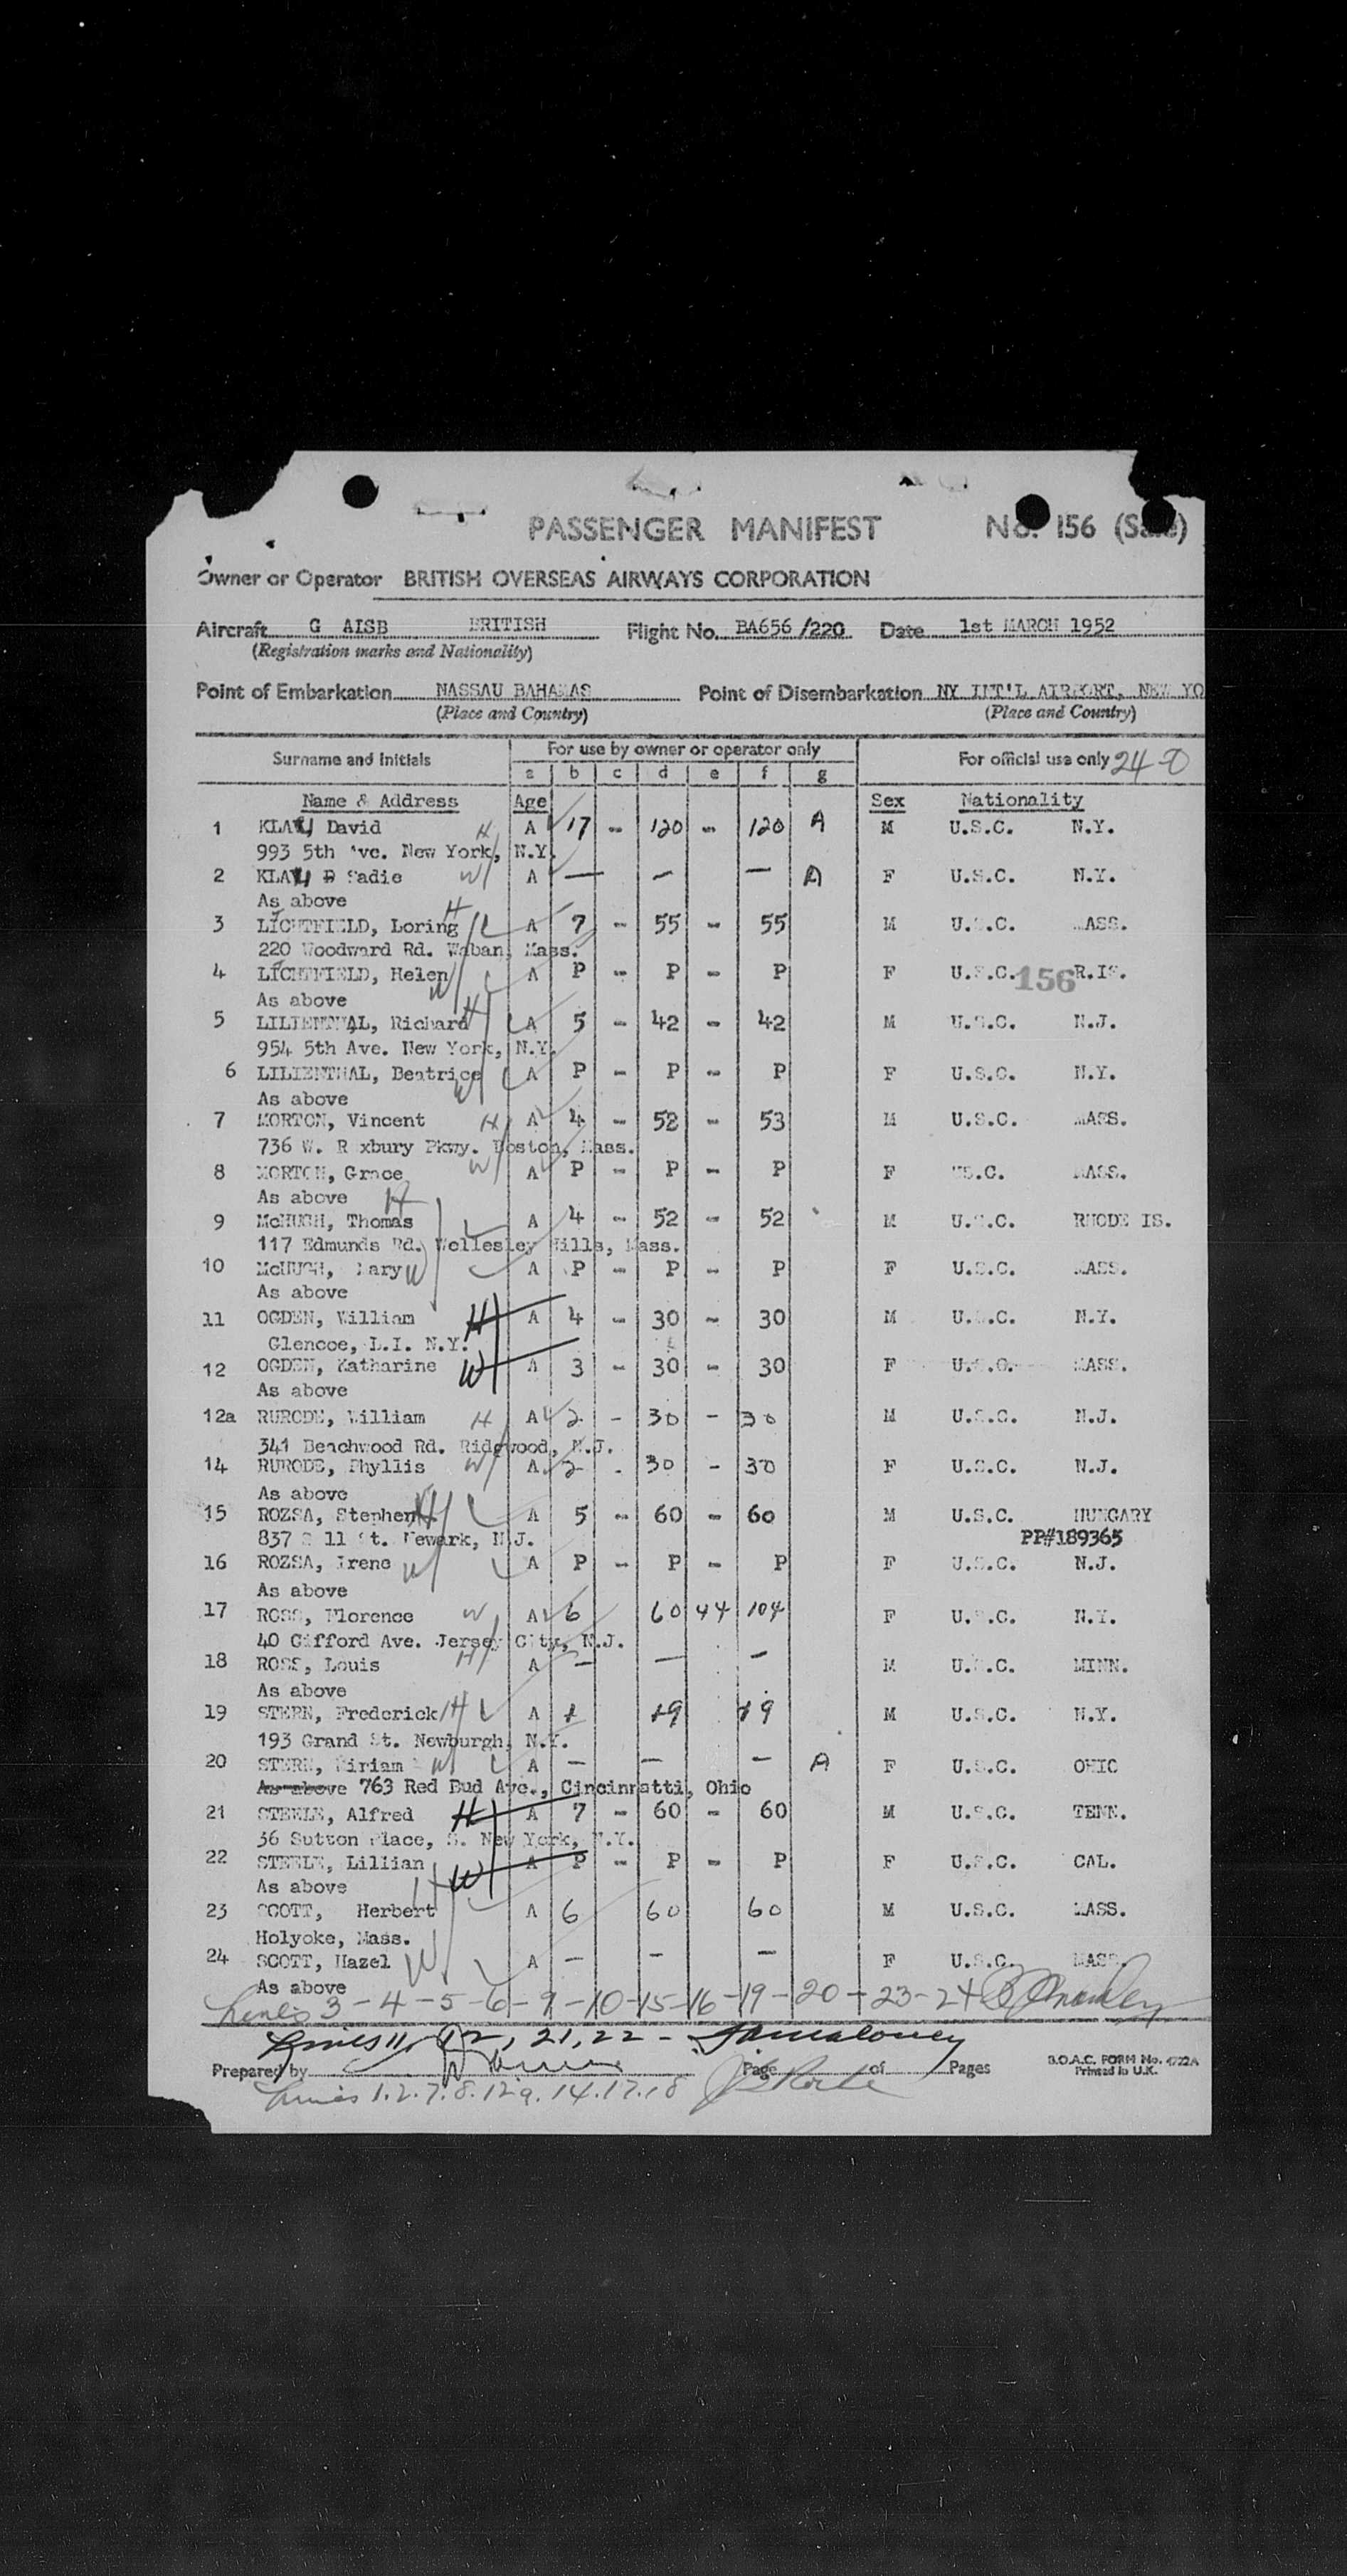 PASSENGER MANIFEST No. 156 (Sale)
Owner or Operator BRITISH OVERSEAS AIRWAYS CORPORATION
Aircraft G AISB BRITISH Flight No. BA656/220 Date 1st MARCH 1952
(Registration marks and Nationality)
Point of Embarkation NASSAU BAHAMAS Point of Disembarkation NY INT'L AIRPORT, NEW YO
(Place and Country) (Place and Country)
Surname and Initials For use by owner or operator only For official use only 24-0
a b c d e f g
Name & Address Age Sex Nationality
1 David H A 17 - 120 - 120 A M U.S.C. N.Y.
993 5th Ave. New York, N.Y.
2 Sadie W A — — — A F U.S.C. N.Y.
As above
3 LICHTFIELD, Loring H A 7 - 55 - 55 M U.S.C. MASS.
220 Woodward Rd. Waban, Mass.
4 LICHTFIELD, Helen W A P - P - P F U.S.C. 156 R.IS.
As above
5 LILIENTHAL, Richard H A 5 - 42 - 42 M U.S.C. N.J.
954 5th Ave. New York, N.Y.
6 LILIENTHAL, Beatrice W A P - P - P F U.S.C. N.Y.
As above
7 MORTON, Vincent H A 4 - 52 - 53 M U.S.C. MASS.
736 W. R xbury Pkwy. Boston, Mass.
8 MORTON, Grace W A P - P - P F US.C. MASS.
As above
9 McHUGH, Thomas H A 4 - 52 - 52 M U.S.C. RHODE IS.
117 Edmunds Rd. Wellesley Hills, Mass.
10 McHUGH, Mary W A P - P - P F U.S.C. MASS.
As above
11 OGDEN, William H A 4 - 30 - 30 M U.S.C. N.Y.
Glencoe, L.I. N.Y.
12 OGDEN, Katharine W A 3 - 30 - 30 F U.S.C. MASS.
As above
12a RURODE, William H A 2 - 30 - 30 M U.S.C. N.J.
341 Beachwood Rd. Ridgwood, N.J.
14 RURODE, Phyllis W A 2 - 30 - 30 F U.S.C. N.J.
As above
15 ROZSA, Stephen H A 5 - 60 - 60 M U.S.C. HUNGARY
837 St. Newark, N.J. PP#189365
16 ROZSA, Irene W A P - P - P F U.S.C. N.J.
As above
17 ROSS, Florence W A 6 60 44 104 F U.S.C. N.Y.
40 Gifford Ave. Jersey City, N.J.
18 ROSS, Louis H A — — — M U.S.C. MINN.
As above
19 STERN, Frederick H A 1 19 19 M U.S.C. N.Y.
193 Grand St. Newburgh, N.Y.
20 STERN, Miriam W A — — — A F U.S.C. OHIO
As above 763 Red Bud Ave., Cincinnatti, Ohio
21 STEELE, Alfred H A 7 - 60 - 60 M U.S.C. TENN.
36 Sutton Place, S. New York, N.Y.
22 STEELE, Lillian W A P - P - P F U.S.C. CAL.
As above
23 SCOTT, Herbert H A 6 60 60 M U.S.C. MASS.
Holyoke, Mass.
24 SCOTT, Hazel W A — — — F U.S.C. MASS.
As above
Lines 3-4-5-6-9-10-15-16-19-20-23-24
Lines 11, 12, 21, 22 -
Prepared by Page of Pages B.O.A.C. FORM No. 4722A
Printed in U.K.
Lines 1.2.7.8.12a.14.17.18